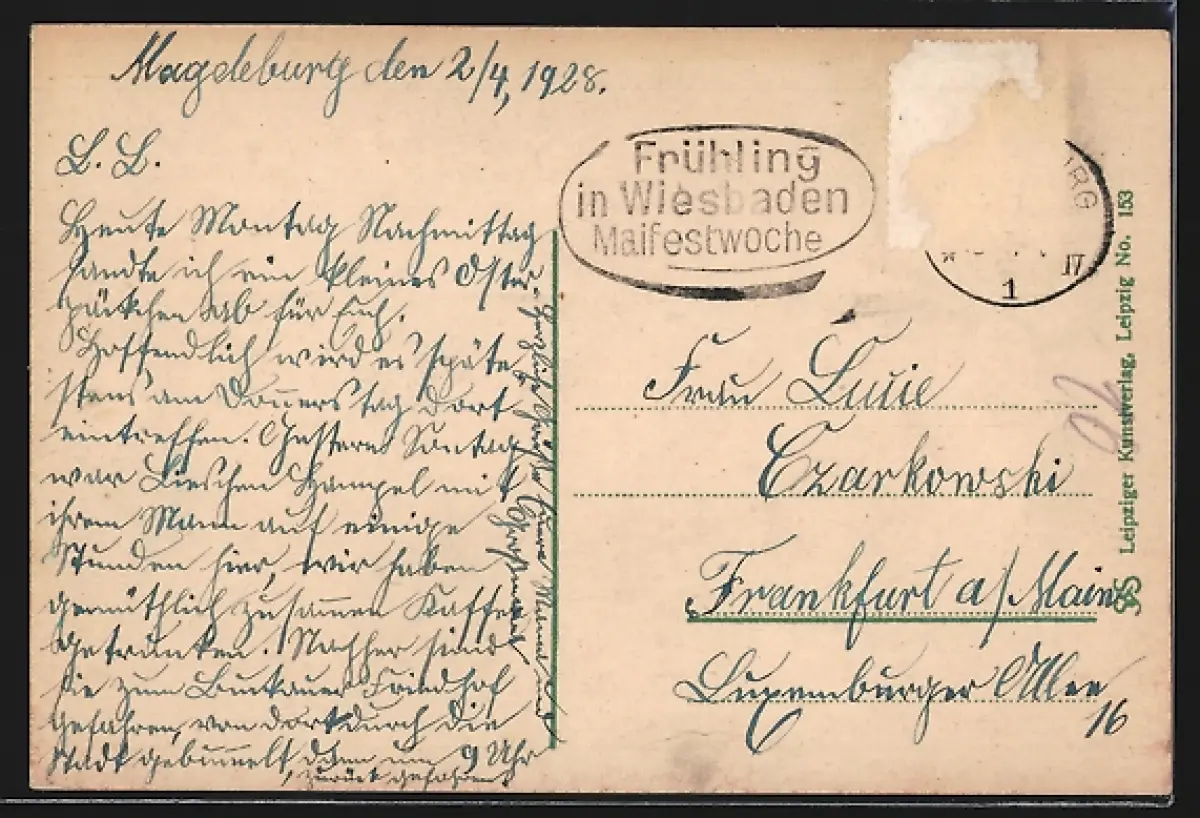 Magdeburg den 2/4, 1928.
L. L.
Heute Montag Nachmittag
sandte ich ein kleines Oster-
päckchen ab für Euch.
Hoffendlich wird es späte
stens am Donnerstag dort
eintreffen. Gestern Sonntag
war Lieschen Hampel mit
ihrem Mann auf einige
Stunden hier, wir haben
gemüthlich zusammen Kaffee
getrunken. Nachher sind
sie zum Buckauer Friedhof
gefahren, von dort durch die
Stadt gebummelt dann um 9 Uhr
zurück gefahren.
Herzliche Grüße Eure Mama und
Großmama
Frühling
in Wiesbaden
Maifestwoche
URG
IV
1
Frau Luiie
Czarkowski
Frankfurt a/Main
Luxemburger Allee
16
Leipziger Kunstverlag, Leipzig No. 153